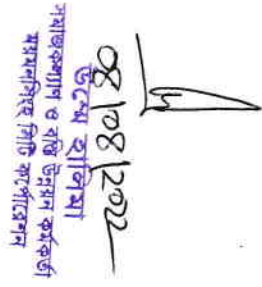 ০৪/০৪/২০২২
উম্মে হালিমা
সমাজকল্যাণ ও বস্তি উন্নয়ন কর্মকর্তা
ময়মনসিংহ সিটি কর্পোরেশন